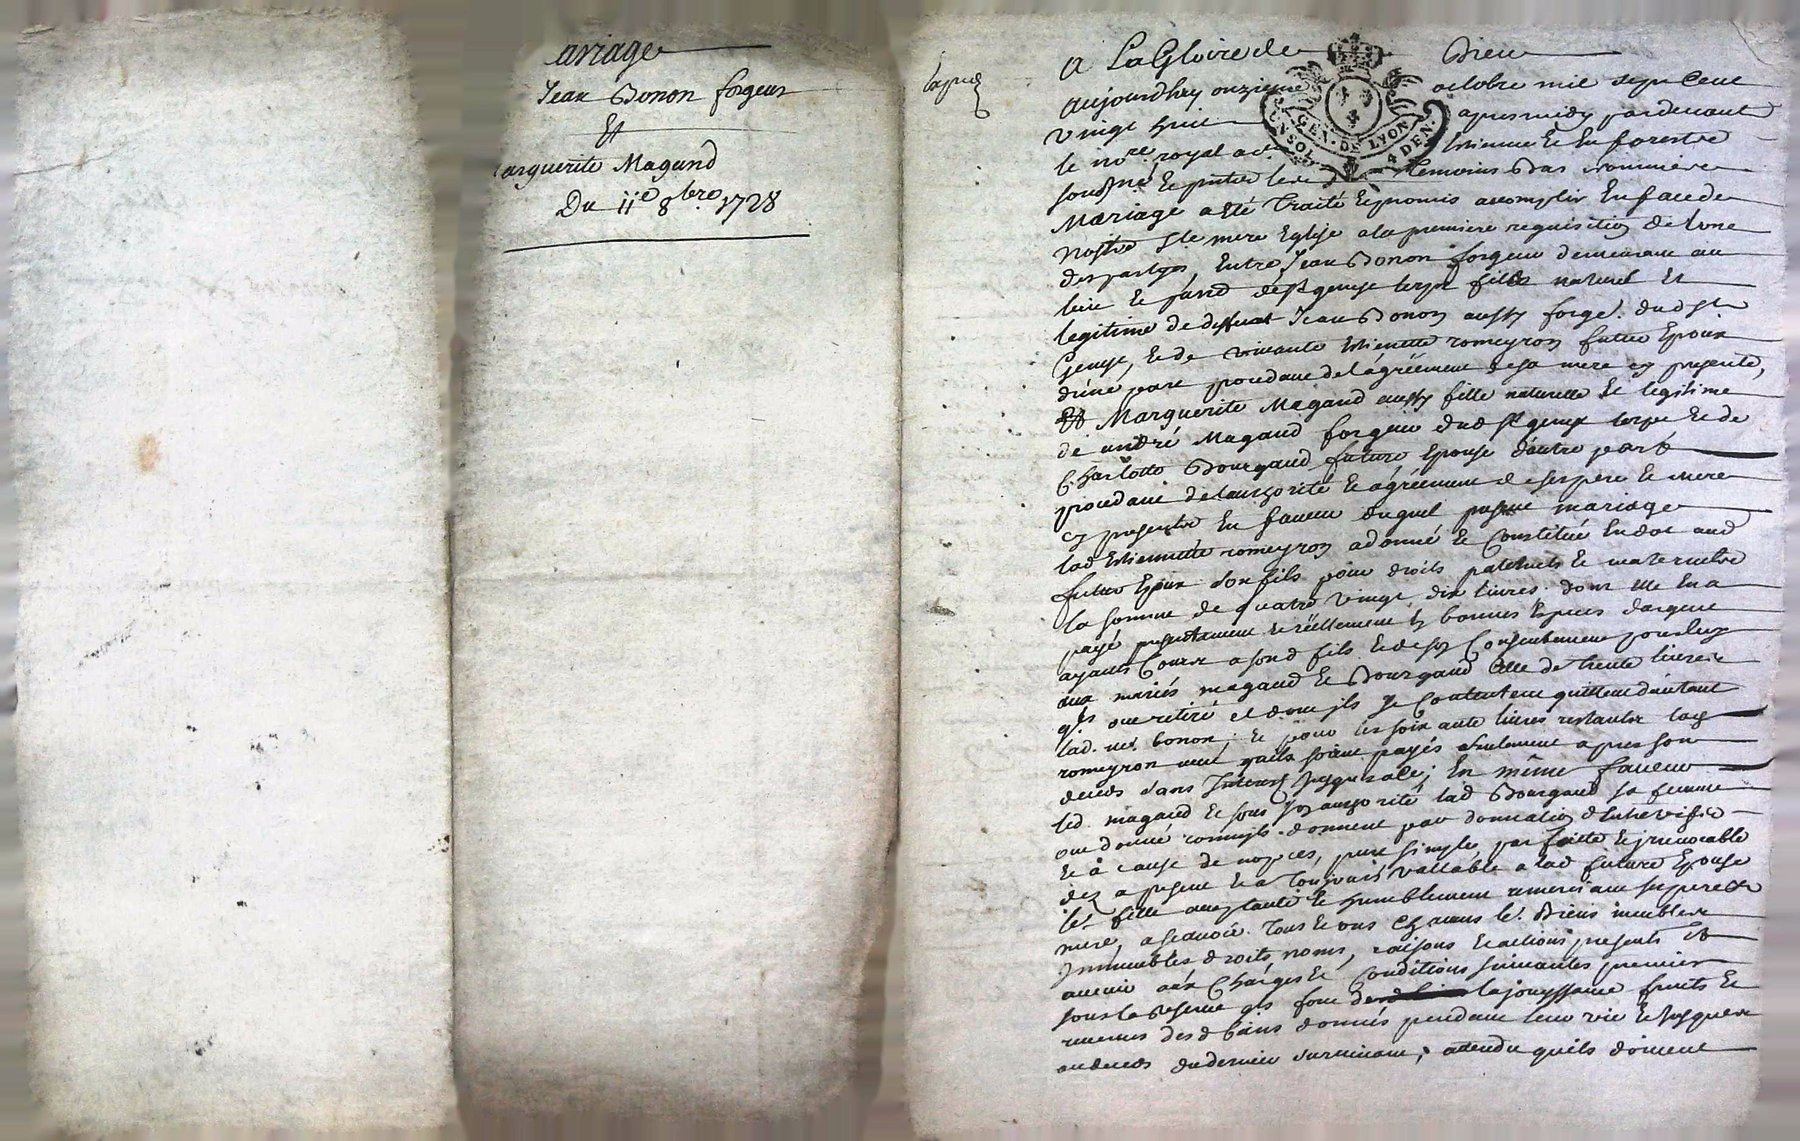 ariage
Jean Bonon forgeur
Et
arguerite Magand
Du 11e 8bre 1728
A La Gloire de Dieu
aujourdhuy onzieme octobre mil sept Cent
vingt huit apres midy pardevant
le nore royal
GEN. DE LYON
UN SOL 4 DEN.
soussigné temoins bas nommés
Mariage a eté Traité et promis accomplir En face de
nostre Ste mere Eglise a la premiere requisition de lune
des parties, Entre Jean Bonon forgeur demeurant au
lieu et fils naturel et
legitime de deffunt Jean Bonon aussy forge. dud St
Genest, et de vivante Estiennette romeyron futur Epoux
d'une part procedant de l'agréement de sa mere cy presente,
Et Marguerite Magand aussy fille naturelle et legitime
de andré Magand forgeur dud St genest lerpt et de
Charlotte Bourgaud future Epouse d'autre part
procedant de l'authorité et agréement de ses pere et mere
cy presents En faveur duquel present mariage
lad Estiennette romeyron a donné et Constitué En dot aud
futur Epoux son fils pour droits paternels et maternels
la somme de quatre vingt dix livres. dont elle en a
payé presentement et réellement En bonnes Especes d'argent
ayant Cours a sond fils et de son Consentement pour luy
aux mariés magaud et Bourgaud Celle de trente livres
qils ont retiré et dont ils se Contentent quittent d'autant
lad. ve bonon; et pour les soixante livres restants lad
romeyron veut qu'ils soient payés seulement apres son
deces sans Interest jusqu'alors; En même faveur
led. magaud et sous son authorité lad Bourgaud sa femme
ont donné comme ils donnent par donnation d'Entrevifs
et à cause de nopces, pure simple parfaitte et irrevocable
dez a present et a toujours vallable a lad future Epouse
leur fille acceptante et humblement remerciant ses pere et
mere, a sçavoir. Tous et uns Chacuns leurs Biens meubles
Immeubles droits, noms, raisons et actions presents et
avenir aux Charges et Conditions suivantes premier
sous la reserve qils font la jouyssance fruits et
revenus desd biens donnés pendant leur vie et jusques
au deces du dernier survivant; attendu qu'ils doivent